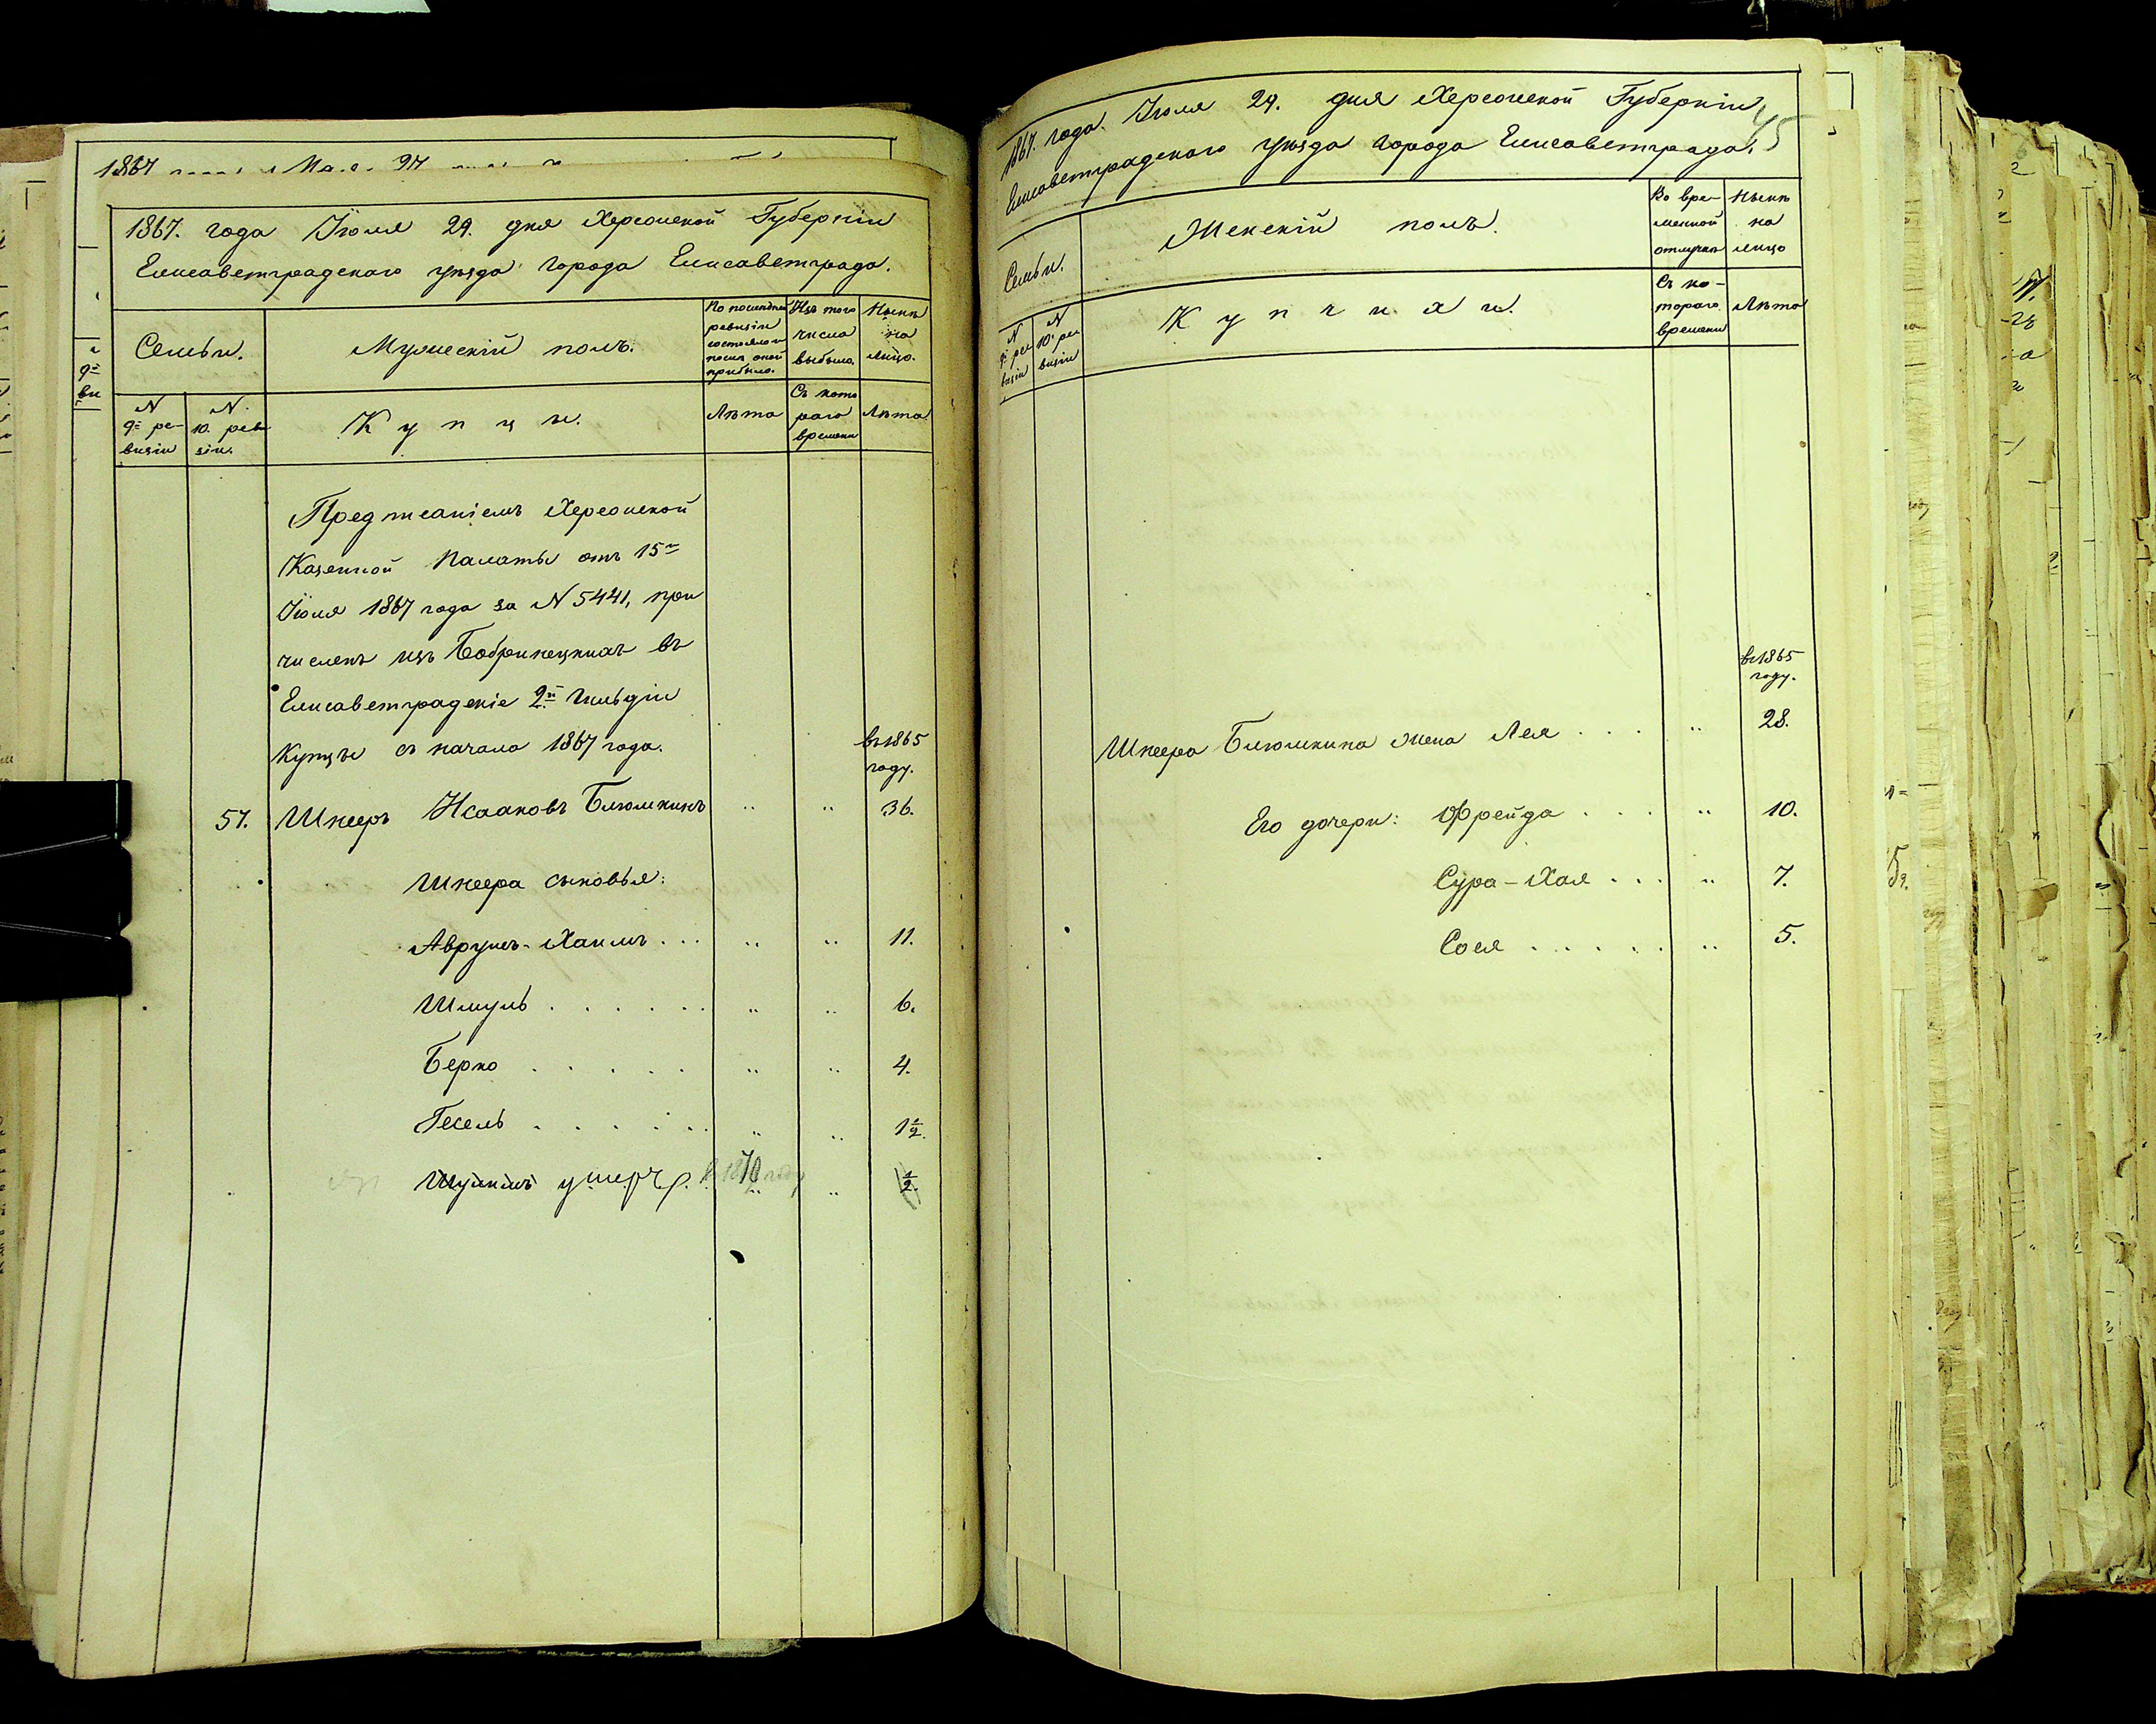 1867
1867. года Іюля 29. дня Херсонской Губерніи
Елисаветградскаго уѣзда города Елисаветграда.
Семьи.
Мужескій полъ.
По послѣдней ревизіи состояло и послѣ оной прибыло.
Изъ того числа выбыло.
Нынѣ на лицо.
N 9й ревизіи
N. 10. ревизіи.
Купцы.
Лѣта
Съ котораго времени
Лѣта
Предписаніемъ Херсонской
Казенной Палаты отъ 15го
Іюля 1867 года за N 5441, при
численъ изъ Бобринецкихъ въ
Елисаветградскіе 2й гильдіи
Купцы съ начала 1867 года.
въ 1865
году.
57. Шнеръ Исааковъ Блюмкинъ " " 36.
Шнеера сыновья:
Аврумъ-Хаимъ ... " " 11.
Шмуль ...... " " 6.
Берко ..... " " 4.
Гесель ...... " " 1½.
умеръ 1870 году " " ½.
1867. года Іюля 29. дня Херсонской Губерніи
45
Елисаветградскаго уѣзда города Елисаветграда.
Семьи.
Женскій полъ.
Во временной отлучкѣ
Нынѣ на лицо
N 9й ревизіи
N 10й ревизіи
Купчихи.
Съ котораго времени
Лѣта
въ 1865
году.
Шнеера Блюмкина жена Лея .... " 28.
Его дочери: Фрейда ... " 10.
Сура-Хая ... " 7.
Сося ..... " 5.